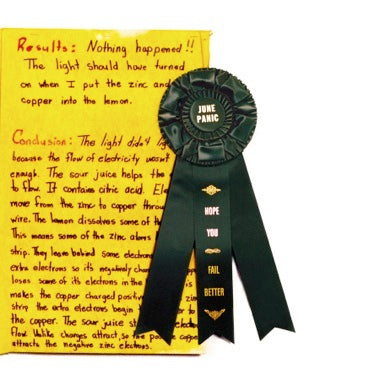 Results: Nothing happened!!
The light should have turned
on when I put the zinc and
copper into the lemon.
Conclusion: The light didn't
because the flow of electricity wasn't
enough. The sour juice helps the
to flow. It contains citric acid.
move from the zinc to copper
wire. The lemon dissolves some of
This means some of the zinc atoms
strip. They leave behind some electrons
extra electrons so it's negatively
loses some of its electrons in the
makes the copper charged positive
strip the extra electrons begin to
the copper. The sour juice
flow. Unlike charges attract, so the positive copper
attracts the negative zinc electrons.
JUNE
PANIC
HOPE
YOU
FAIL
BETTER